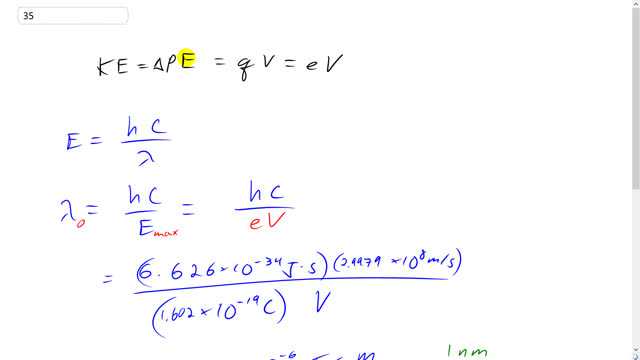 35
KE = ΔPE = qV = eV
E = hc / λ
λ₀ = hc / E_max = hc / eV
= (6.626 × 10⁻³⁴ J·s)(2.9979 × 10⁸ m/s) / (1.602 × 10⁻¹⁹ C) V
1 nm